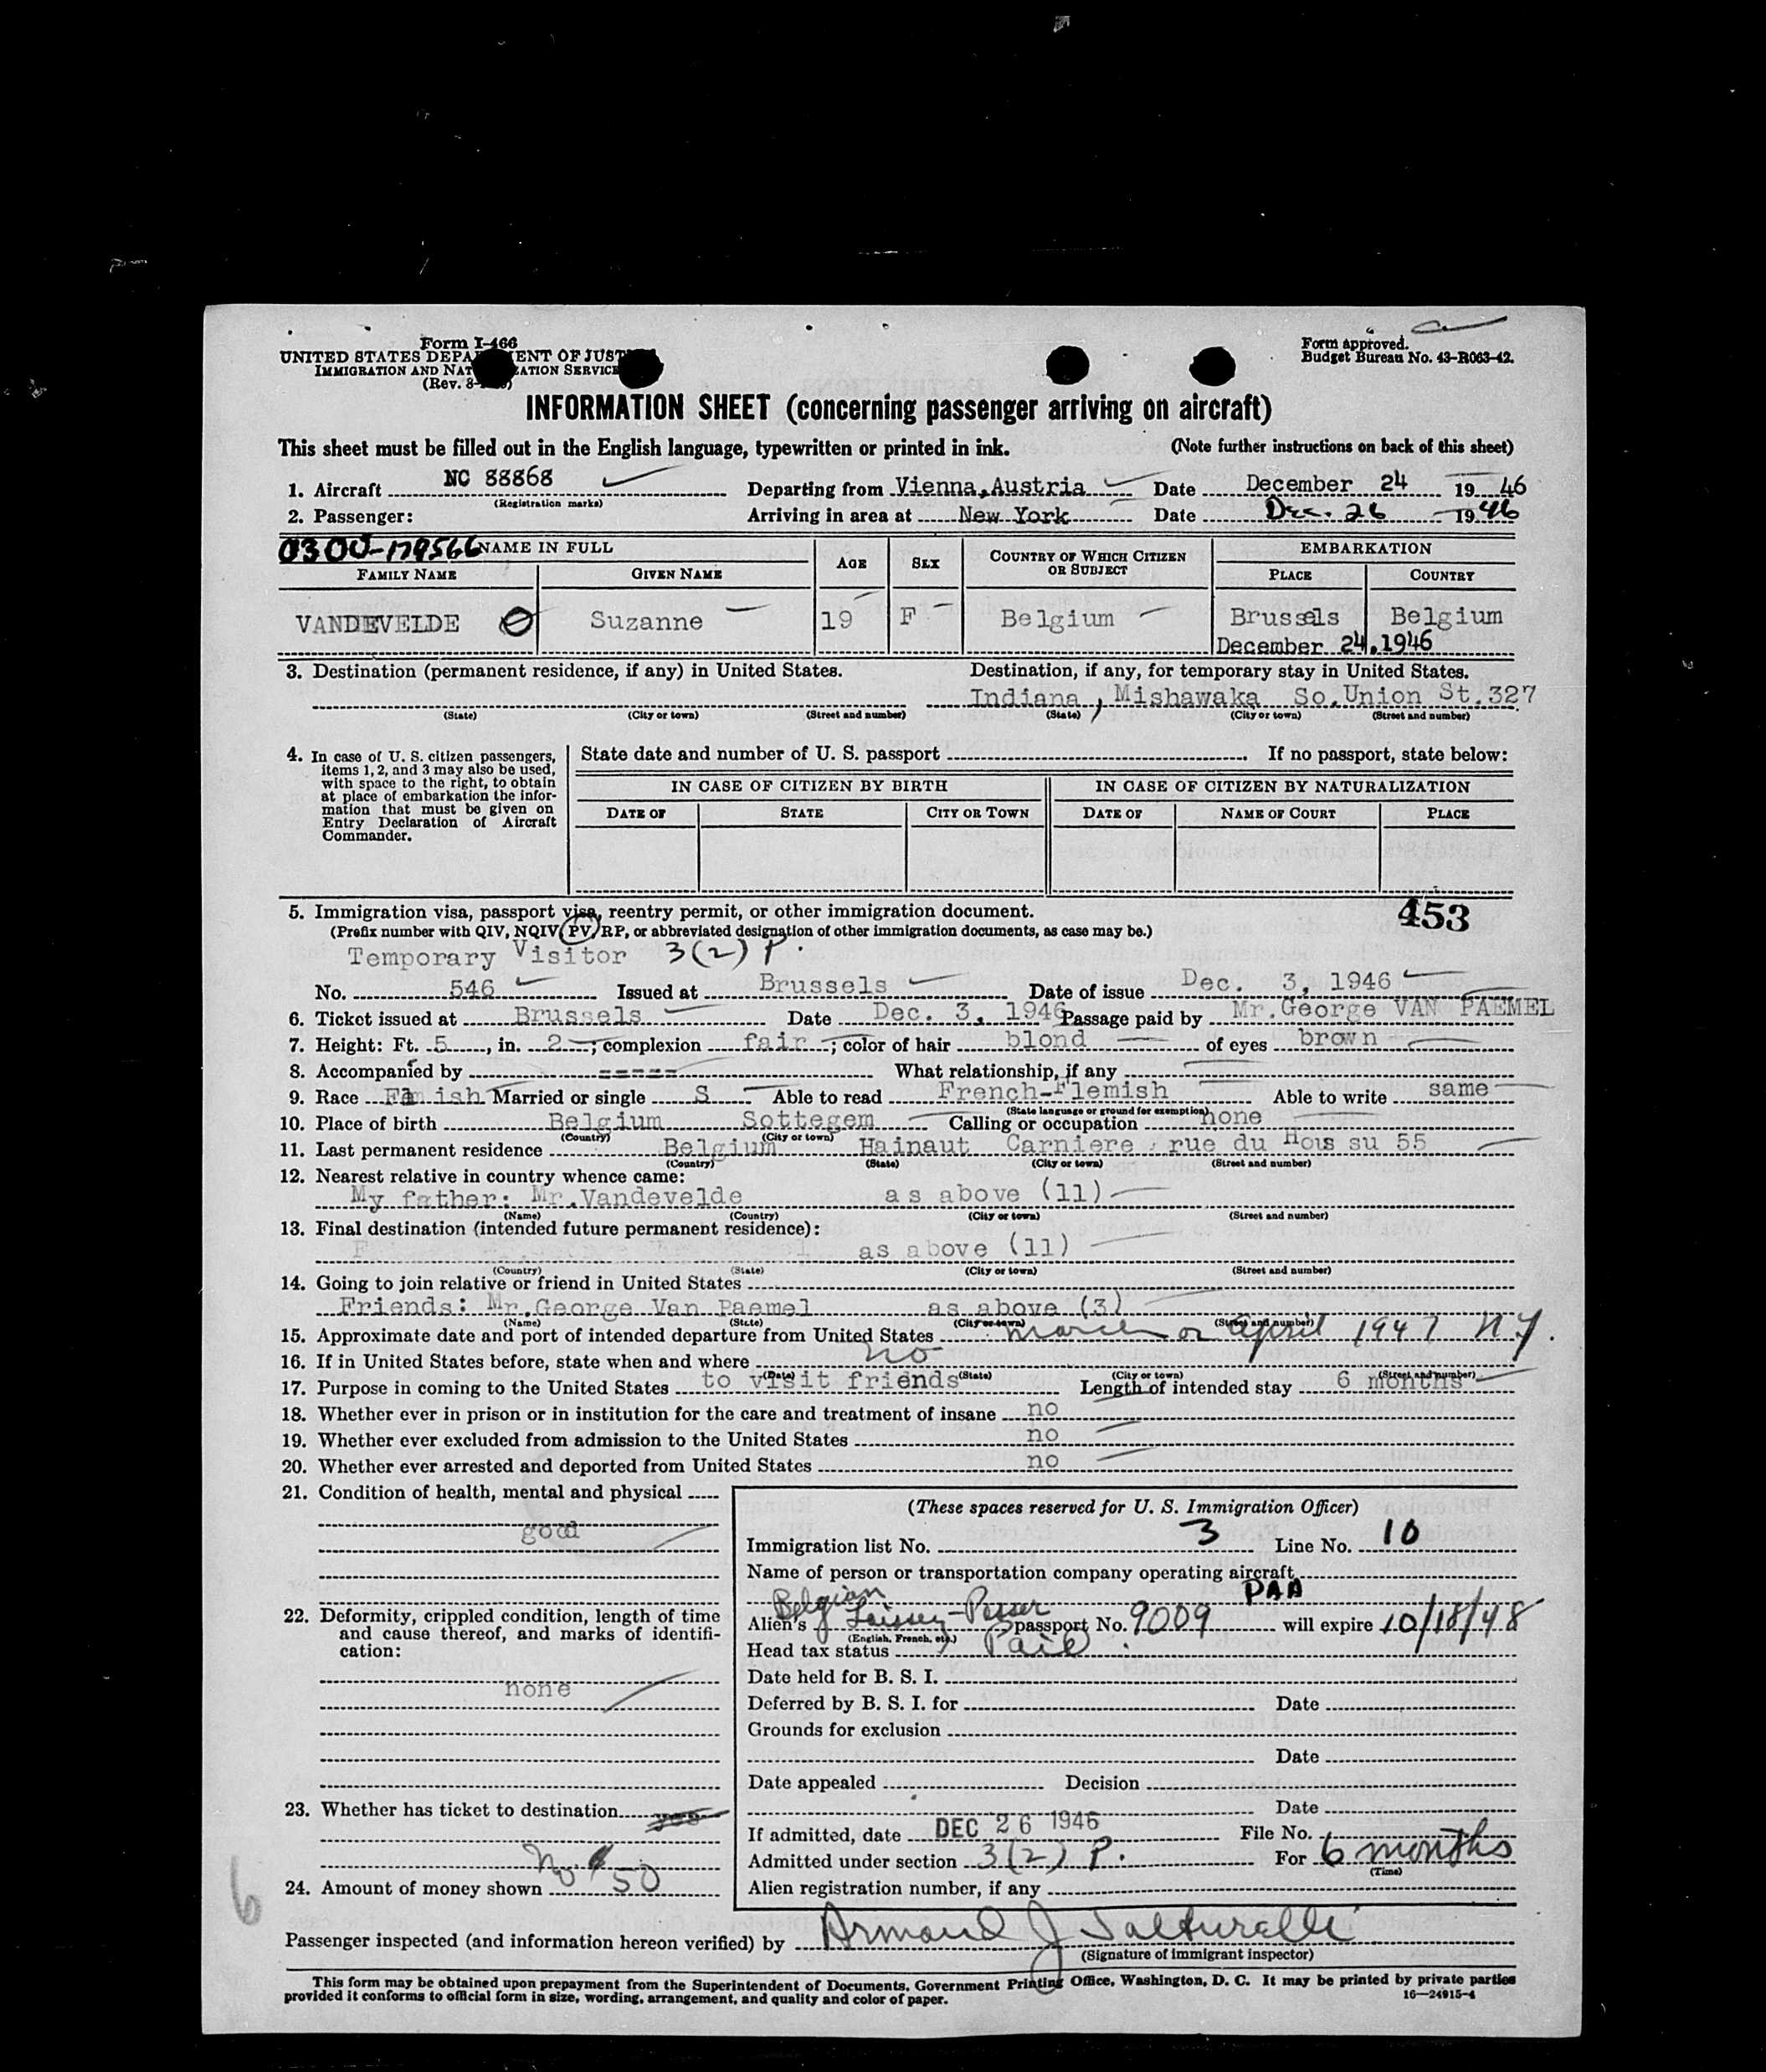 Form I-466
UNITED STATES DEPA ENT OF JUST
IMMIGRATION AND NAT ZATION SERVICE
(Rev. 8-
Form approved.
Budget Bureau No. 43-R063-42.
INFORMATION SHEET (concerning passenger arriving on aircraft)
This sheet must be filled out in the English language, typewritten or printed in ink. (Note further instructions on back of this sheet)
1. Aircraft NC 88868 Departing from Vienna,Austria Date December 24 19 46
(Registration marks)
2. Passenger: Arriving in area at New York Date Dec. 26 1946
0300-179566 NAME IN FULL AGE SEX COUNTRY OF WHICH CITIZEN OR SUBJECT EMBARKATION
FAMILY NAME GIVEN NAME PLACE COUNTRY
VANDEVELDE Suzanne 19 F Belgium Brussels Belgium
December 24,1946
3. Destination (permanent residence, if any) in United States. Destination, if any, for temporary stay in United States.
Indiana , Mishawaka So.Union St.327
(State) (City or town) (Street and number) (State) (City or town) (Street and number)
4. In case of U. S. citizen passengers, items 1, 2, and 3 may also be used, with space to the right, to obtain at place of embarkation the information that must be given on Entry Declaration of Aircraft Commander.
State date and number of U. S. passport . If no passport, state below:
IN CASE OF CITIZEN BY BIRTH IN CASE OF CITIZEN BY NATURALIZATION
DATE OF STATE CITY OR TOWN DATE OF NAME OF COURT PLACE
5. Immigration visa, passport visa, reentry permit, or other immigration document. 453
(Prefix number with QIV, NQIV, PV, RP, or abbreviated designation of other immigration documents, as case may be.)
Temporary Visitor 3(2) P.
No. 546 Issued at Brussels Date of issue Dec. 3, 1946
6. Ticket issued at Brussels Date Dec. 3, 1946 Passage paid by Mr.George VAN PAEMEL
7. Height: Ft. 5, in. 2; complexion fair; color of hair blond of eyes brown
8. Accompanied by ===== What relationship, if any
9. Race Married or single S Able to read French-Flemish Able to write same
(State language or ground for exemption)
10. Place of birth Belgium Sottegem Calling or occupation none
(Country) (City or town)
11. Last permanent residence Belgium Hainaut Carniere rue du Hous su 55
(Country) (State) (City or town) (Street and number)
12. Nearest relative in country whence came:
My father: Mr.Vandevelde as above (11)
(Name) (Country) (City or town) (Street and number)
13. Final destination (intended future permanent residence):
as above (11)
(Country) (State) (City or town) (Street and number)
14. Going to join relative or friend in United States
Friends: Mr.George Van Paemel as above (3)
(Name) (State) (City or town) (Street and number)
15. Approximate date and port of intended departure from United States March or April 1947 NY.
16. If in United States before, state when and where no
(Date) (State) (City or town) (Street and number)
17. Purpose in coming to the United States to visit friends Length of intended stay 6 months
18. Whether ever in prison or in institution for the care and treatment of insane no
19. Whether ever excluded from admission to the United States no
20. Whether ever arrested and deported from United States no
21. Condition of health, mental and physical
good
22. Deformity, crippled condition, length of time and cause thereof, and marks of identification:
none
23. Whether has ticket to destination yes
No
24. Amount of money shown $ 50
6
(These spaces reserved for U. S. Immigration Officer)
Immigration list No. 3 Line No. 10
Name of person or transportation company operating aircraft
PAA
Belgian
Alien's Laissez-Passer passport No. 9009 will expire 10/18/48
(English, French, etc.)
Head tax status Paid
Date held for B. S. I.
Deferred by B. S. I. for Date
Grounds for exclusion
Date
Date appealed Decision
Date
If admitted, date DEC 26 1946 File No.
Admitted under section 3(2) P. For 6 months
(Time)
Alien registration number, if any
Passenger inspected (and information hereon verified) by Armand J
(Signature of immigrant inspector)
This form may be obtained upon prepayment from the Superintendent of Documents, Government Printing Office, Washington, D. C. It may be printed by private parties
provided it conforms to official form in size, wording, arrangement, and quality and color of paper. 16—24915-4